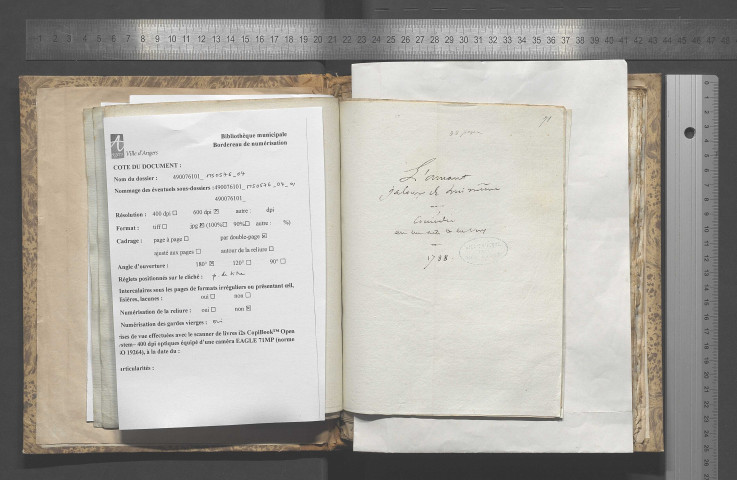 Ville d'Angers
Bibliothèque municipale
Bordereau de numérisation
COTE DU DOCUMENT :
Nom du dossier : 490076101_ MS0576_07
Nommage des éventuels sous-dossiers : 490076101_ MS0576_07_01
490076101_
Résolution : 400 dpi ☐ 600 dpi ☒ autre : dpi
Format : tiff ☐ jpg ☒ (100% ☐ 90% ☐ autre : %)
Cadrage : page à page ☐ par double-page ☒
ajusté aux pages ☐ autour de la reliure ☐
Angle d'ouverture : 180° ☒ 120° ☐ 90° ☐
Réglets positionnés sur le cliché :
Intercalaires sous les pages de formats irréguliers ou présentant
lisières, lacunes : oui ☐ non ☐
Numérisation de la reliure : oui ☐ non ☒
Numérisation des gardes vierges :
ises de vue effectuées avec le scanner de livres i2s CopiBook™ Open
ystem– 400 dpi optiques équipé d'une caméra EAGLE 71MP (norme
SO 19264), à la date du :
articularités :
L'amant
jaloux de lui même
Comédie
en un acte
1788